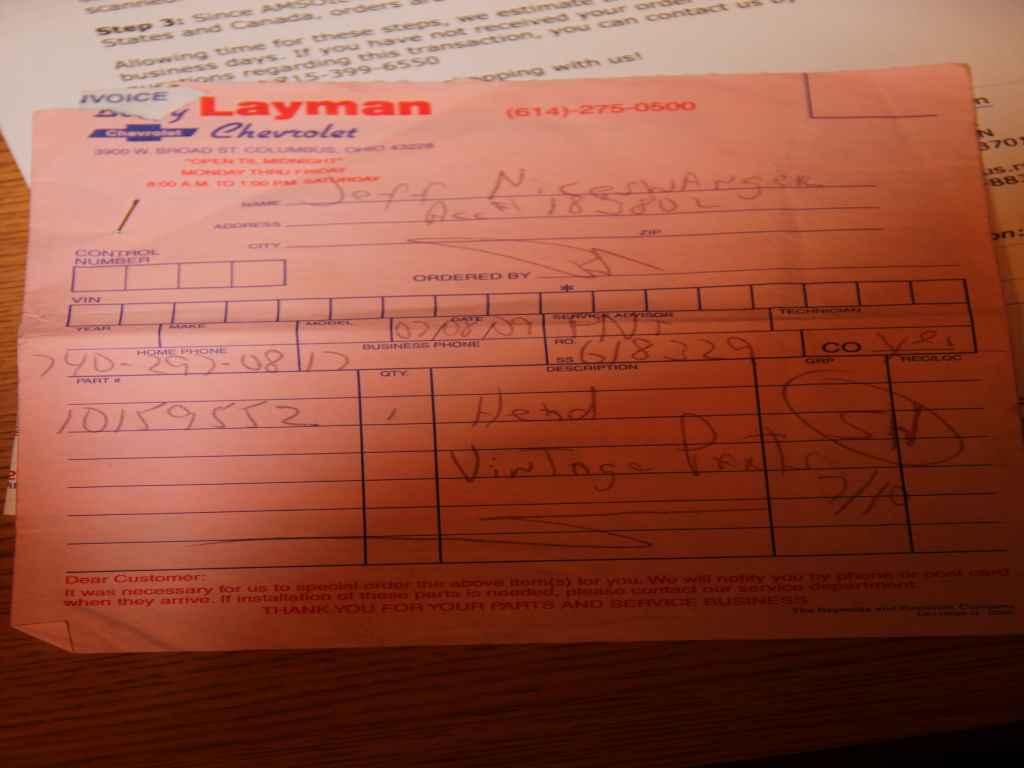 Step 3: Since AMSOIL
States and Canada, orders
Allowing time for these steps, we estimate
business days. If you have not received your order
regarding this transaction, you can contact us by
815-399-6550
shopping with us!
IVOICE
Layman
Chevrolet Chevrolet
(614)-275-0500
3900 W. BROAD ST. COLUMBUS, OHIO 43228
"OPEN TIL MIDNIGHT"
MONDAY THRU FRIDAY
8:00 A.M. TO 1:00 P.M. SATURDAY
NAME Jeff Niceswanger
ADDRESS Acct# 185802
CITY ZIP
CONTROL
NUMBER
ORDERED BY
VIN *
YEAR MAKE MODEL DATE SERVICE ADVISOR TECHNICIAN
07/08/09
HOME PHONE BUSINESS PHONE RO. CO Yes
SS 618329
PART # QTY. DESCRIPTION GRP REC/LOC
10159552 1 Head
Vintage
7/10
Dear Customer:
It was necessary for us to special order the above item(s) for you. We will notify you by phone or post card
when they arrive. If installation of these parts is needed, please contact our service department.
THANK YOU FOR YOUR PARTS AND SERVICE BUSINESS
The Reynolds and Reynolds Company